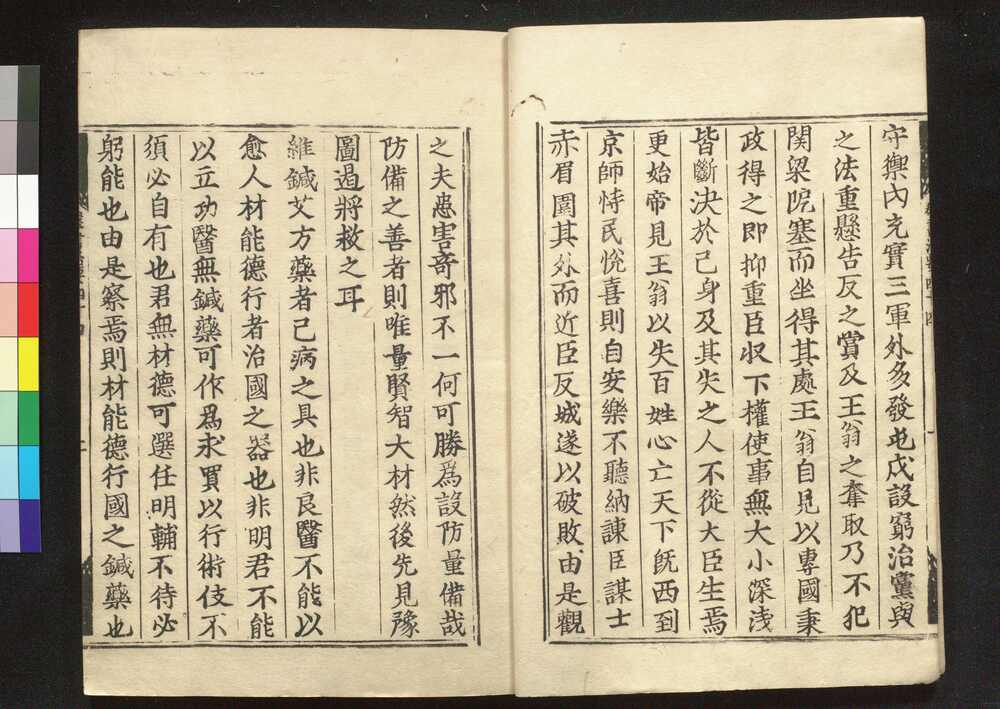 守禦內充實三軍外多發屯戍設窮治黨與
之法重懸告反之賞及王翁之奪取乃不犯
関梁阨塞而坐得其處王翁自見以專國秉
政得之即抑重臣収下權使事無大小深淺
皆斷決於己身及其失之人不從大臣生焉
更始帝見王翁以失百姓心亡天下旣西到
京師恃民悅喜則自安樂不聽納諫臣謀士
赤眉圍其外而近臣反城遂以破敗由是觀
之夫患害奇邪不一何可勝爲設防量備哉
防備之善者則唯量賢智大材然後先見豫
圖過將救之耳
維鍼艾方藥者已病之具也非良醫不能以
愈人材能德行者治國之器也非明君不能
以立功醫無鍼藥可作爲求買以行術伎不
須必自有也君無材德可選任明輔不待必
躬能也由是察焉則材能德行國之鍼藥也